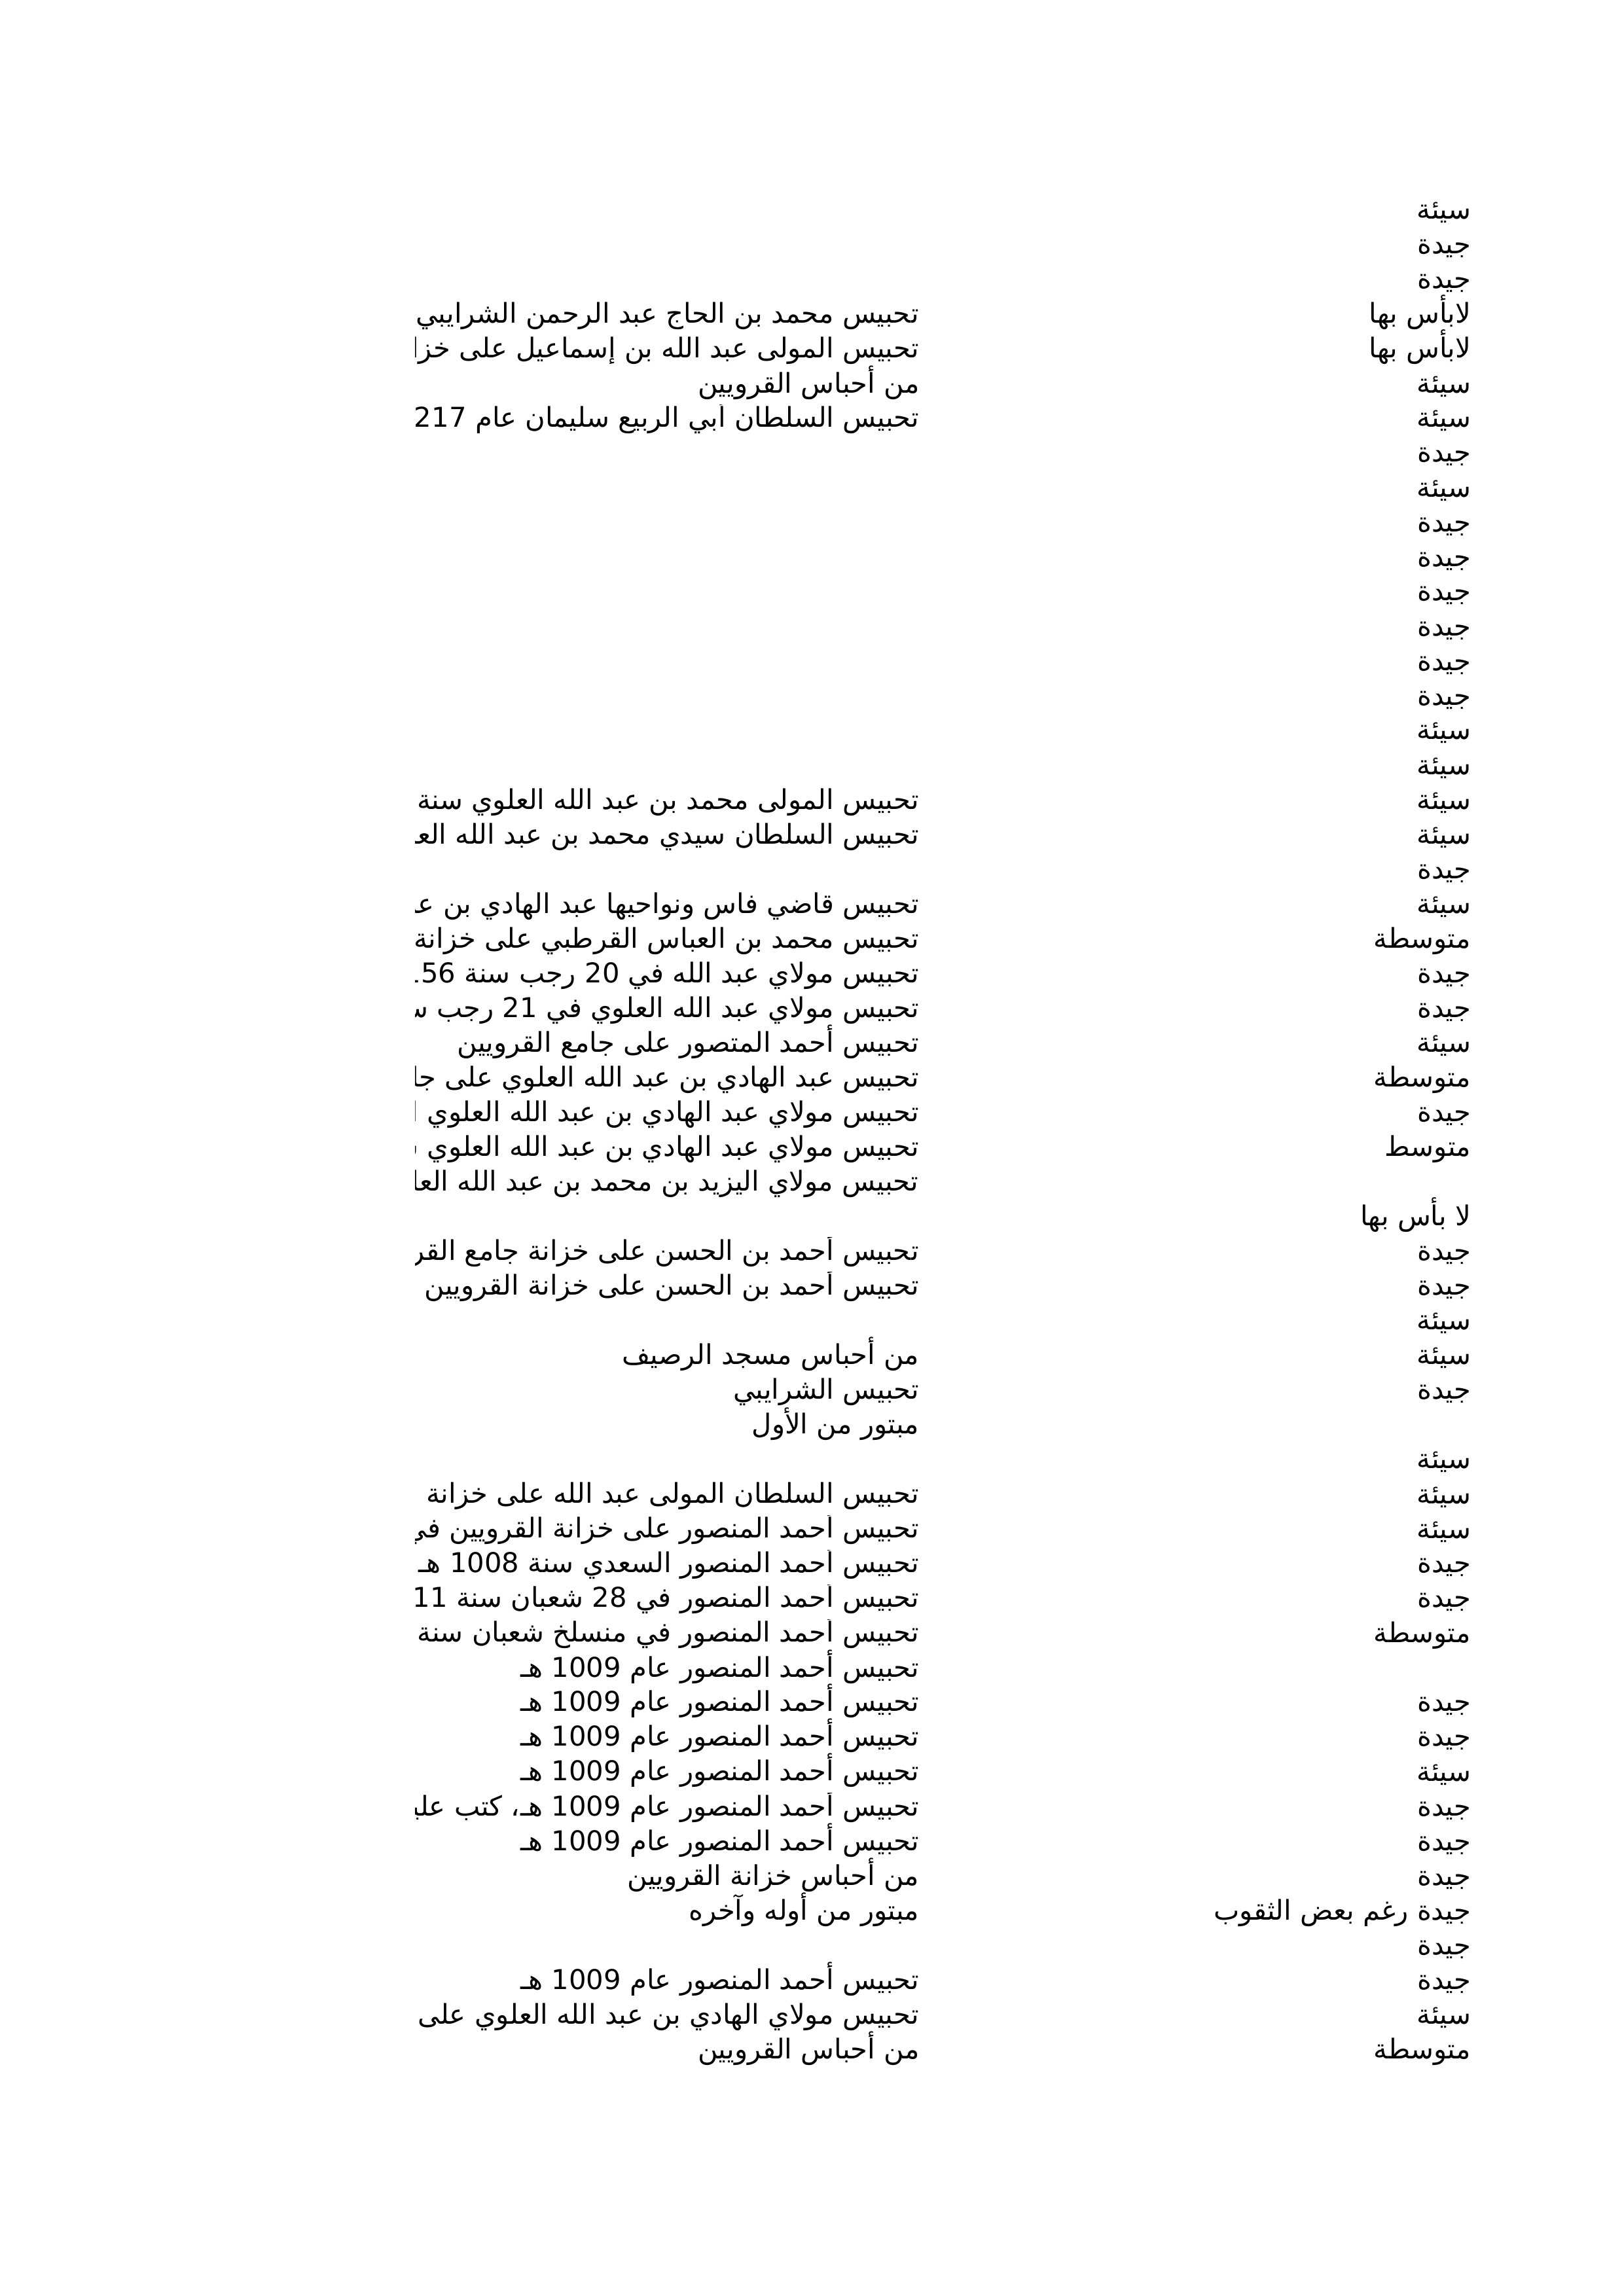 سيئة
جيدة
جيدة
لابأس بها تحبيس محمد بن الحاج عبد الرحمن الشرايبي
لابأس بها تحبيس المولى عبد الله بن إسماعيل على
سيئة من أحباس القرويين
سيئة تحبيس السلطان أبي الربيع سليمان عام 217
جيدة
سيئة
جيدة
جيدة
جيدة
جيدة
جيدة
جيدة
سيئة
سيئة
سيئة تحبيس المولى محمد بن عبد الله العلوي سنة
سيئة تحبيس السلطان سيدي محمد بن عبد الله
جيدة
سيئة تحبيس قاضي فاس ونواحيها عبد الهادي بن
متوسطة تحبيس محمد بن العباس القرطبي على خزانة
جيدة تحبيس مولاي عبد الله في 20 رجب سنة
جيدة تحبيس مولاي عبد الله العلوي في 21 رجب
سيئة تحبيس أحمد المتصور على جامع القرويين
متوسطة تحبيس عبد الهادي بن عبد الله العلوي على
جيدة تحبيس مولاي عبد الهادي بن عبد الله العلوي
متوسط تحبيس مولاي عبد الهادي بن عبد الله العلوي
تحبيس مولاي اليزيد بن محمد بن عبد الله
لا بأس بها
جيدة تحبيس أحمد بن الحسن على خزانة جامع
جيدة تحبيس أحمد بن الحسن على خزانة القرويين
سيئة
سيئة من أحباس مسجد الرصيف
جيدة تحبيس الشرايبي
مبتور من الأول
سيئة
سيئة تحبيس السلطان المولى عبد الله على خزانة
سيئة تحبيس أحمد المنصور على خزانة القرويين في
جيدة تحبيس أحمد المنصور السعدي سنة 1008 هـ
جيدة تحبيس أحمد المنصور في 28 شعبان سنة 11
متوسطة تحبيس أحمد المنصور في منسلخ شعبان سنة
تحبيس أحمد المنصور عام 1009 هـ
جيدة تحبيس أحمد المنصور عام 1009 هـ
جيدة تحبيس أحمد المنصور عام 1009 هـ
سيئة تحبيس أحمد المنصور عام 1009 هـ
جيدة تحبيس أحمد المنصور عام 1009 هـ، كتب
جيدة تحبيس أحمد المنصور عام 1009 هـ
جيدة من أحباس خزانة القرويين
جيدة رغم بعض الثقوب مبتور من أوله وآخره
جيدة
جيدة تحبيس أحمد المنصور عام 1009 هـ
سيئة تحبيس مولاي الهادي بن عبد الله العلوي على
متوسطة من أحباس القرويين